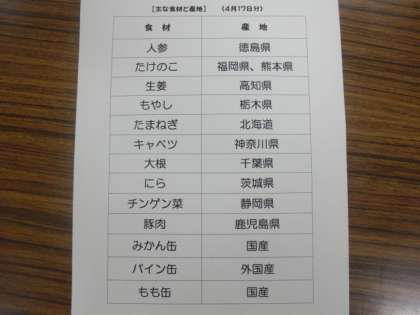 【主な食材と産地】 （4月17日分）
食材 産地
人参 徳島県
たけのこ 福岡県、熊本県
生姜 高知県
もやし 栃木県
たまねぎ 北海道
キャベツ 神奈川県
大根 千葉県
にら 茨城県
チンゲン菜 静岡県
豚肉 鹿児島県
みかん缶 国産
パイン缶 外国産
もも缶 国産